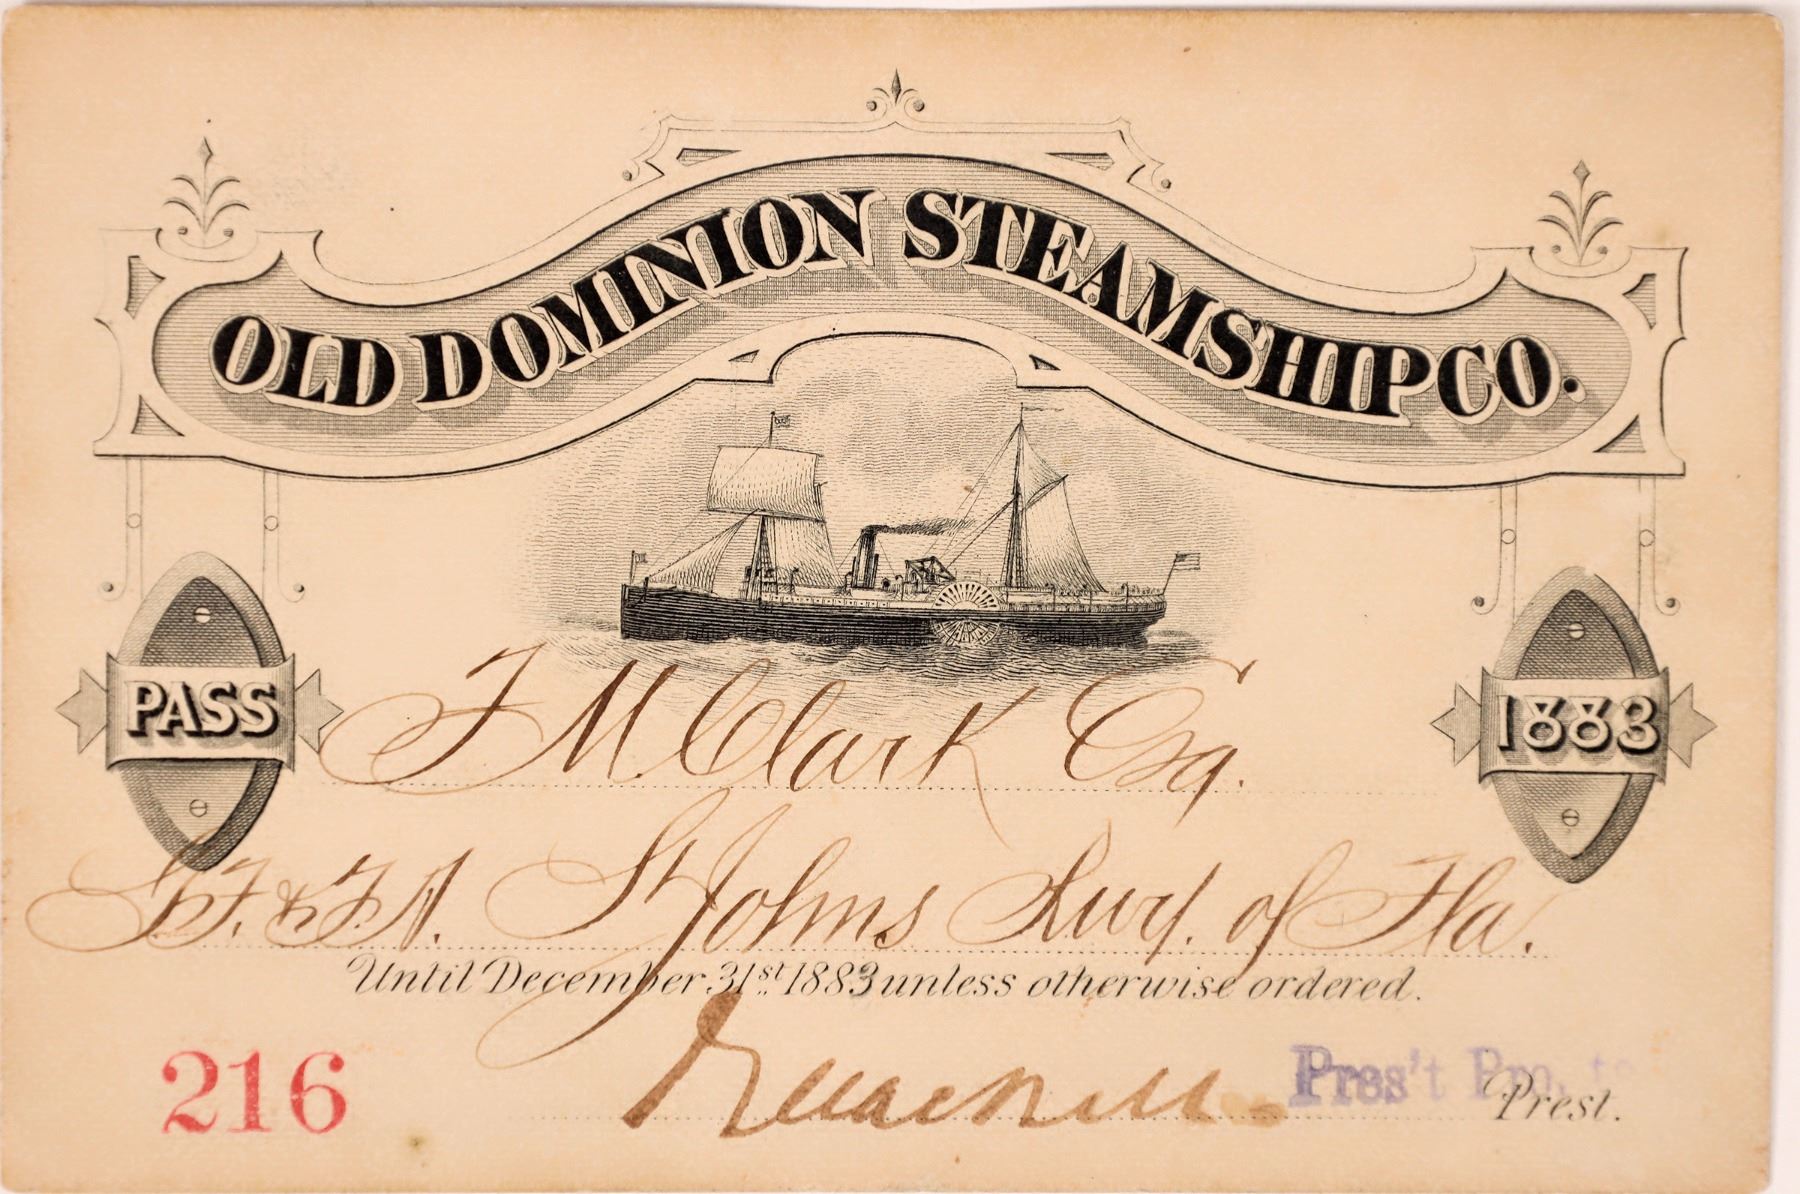 OLD DOMINION STEAMSHIP CO.
PASS
1883
F M. Clark Esq.
G. F. & F. A. St Johns Rwy. of Fla.
Until December 31st 1883 unless otherwise ordered.
216
Pres't Pro. te
Prest.